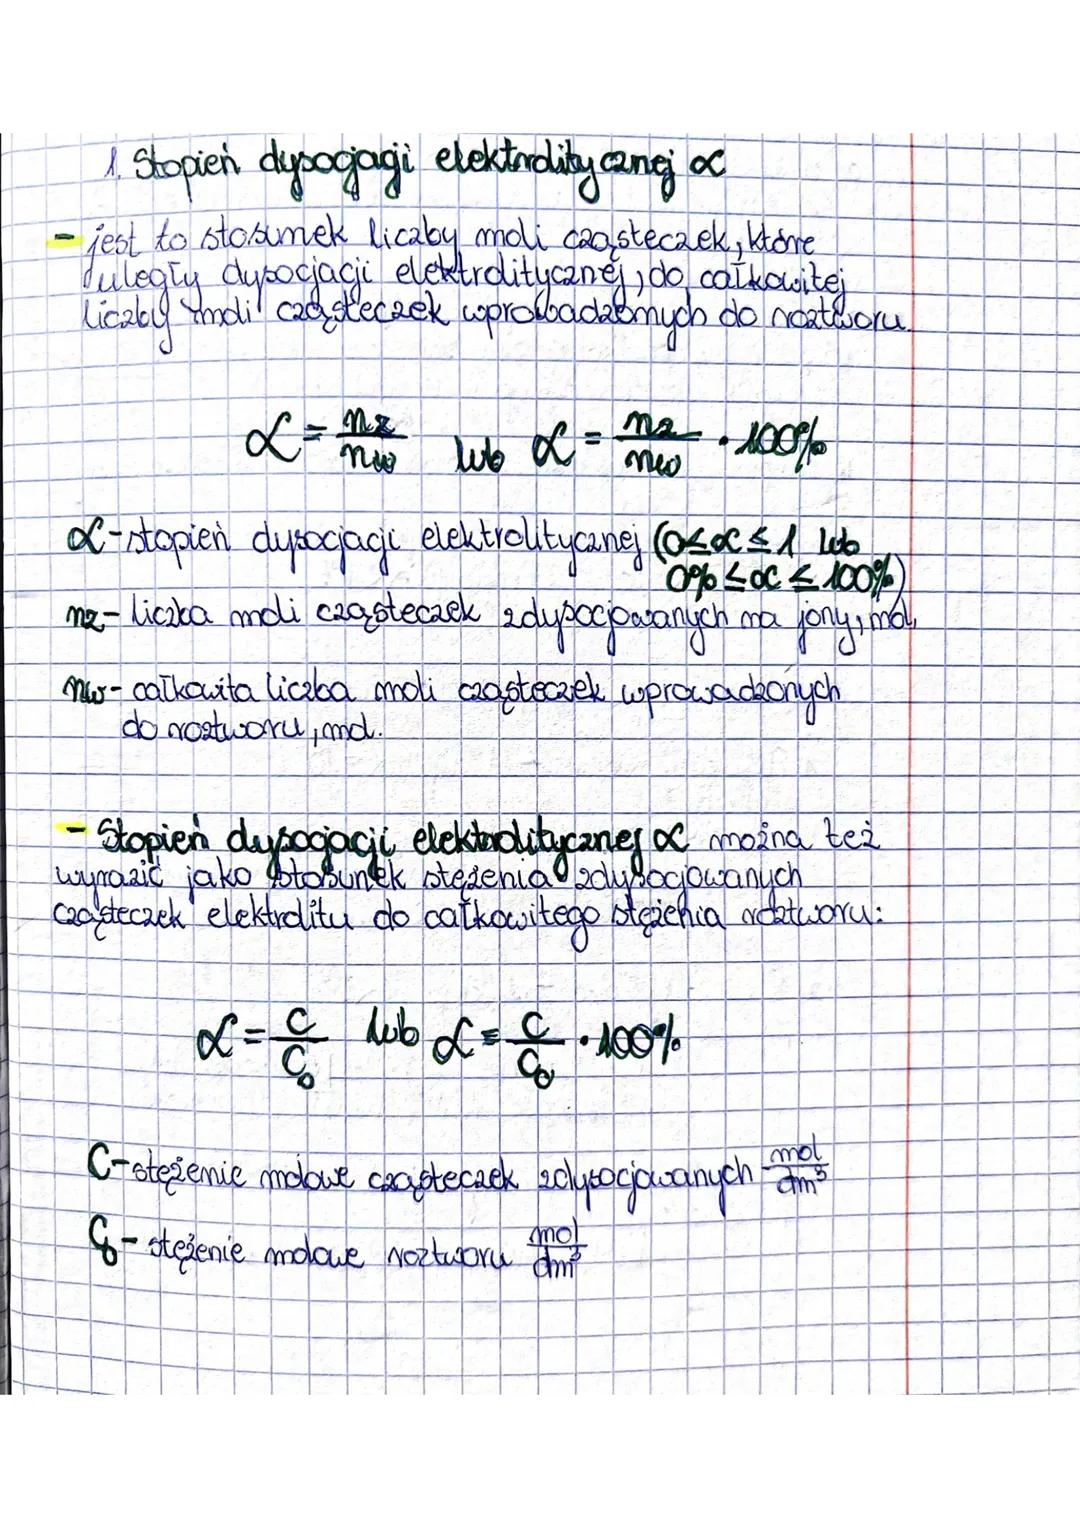 1. Stopień dysocjacji elektrolitycznej α
- jest to stosunek liczby moli cząsteczek, które
uległy dysocjacji elektrolitycznej, do całkowitej
liczby moli cząsteczek wprowadzonych do roztworu.
α = nz/nw lub α = nz/nw · 100%
α - stopień dysocjacji elektrolitycznej (0 ≤ α ≤ 1 lub
0% ≤ α ≤ 100%)
nz - liczba moli cząsteczek zdysocjowanych na jony, mol,
nw - całkowita liczba moli cząsteczek wprowadzonych
do roztworu, mol.
- Stopień dysocjacji elektrolitycznej α można też
wyrazić jako stosunek stężenia zdysocjowanych
cząsteczek elektrolitu do całkowitego stężenia roztworu:
α = C/C₀ lub α = C/C₀ · 100%
C - stężenie molowe cząsteczek zdysocjowanych mol/dm³
C₀ - stężenie molowe roztworu mol/dm³